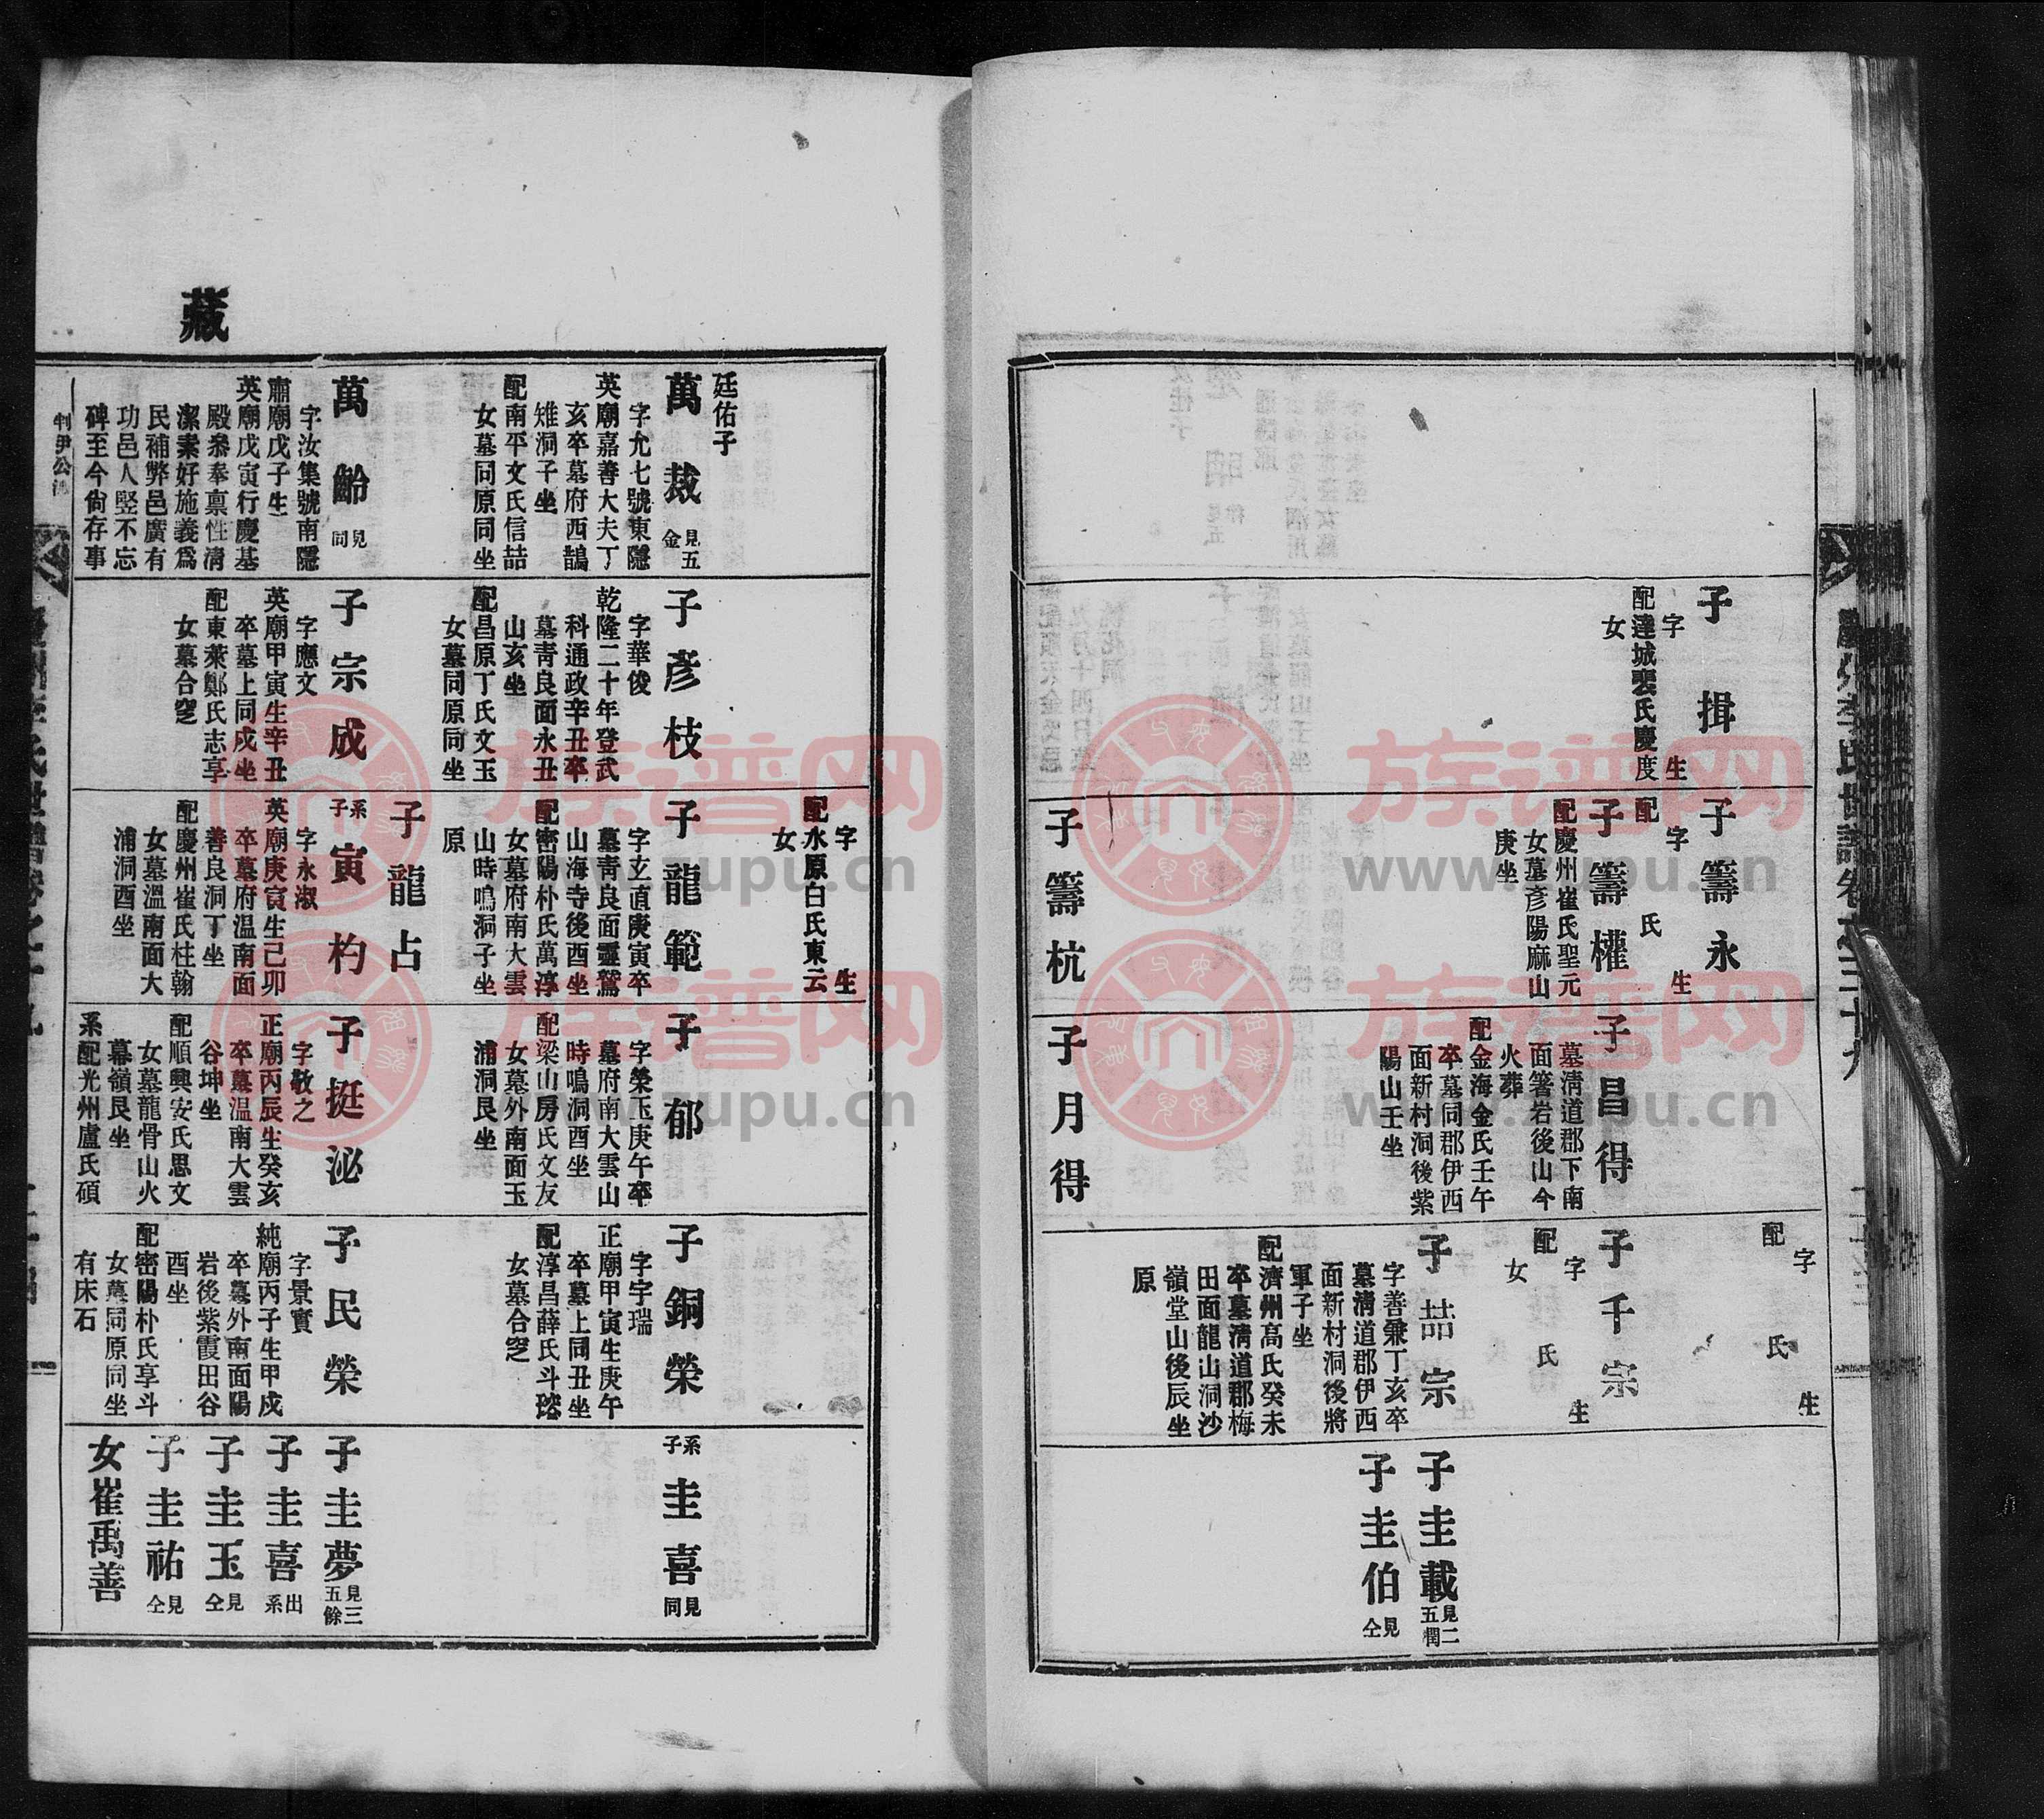 慶州李氏世譜卷之三十九
子揖
字 生
配達城裵氏慶度
女
子籌永
字 生
配 氏
子籌權
配慶州崔氏聖元
女墓彦陽麻山
庚坐
子籌杭
子昌得
墓淸道郡下南
面箸岩後山今
火葬
配金海金氏壬午
卒墓同郡伊西
面新村洞後紫
陽山壬坐
子月得
字 生
配 氏
子千宗
字 生
配 氏
女
子喆宗
字善兼丁亥卒
墓淸道郡伊西
面新村洞後將
軍子坐
配濟州高氏癸未
卒墓淸道郡梅
田面龍山洞沙
嶺堂山後辰坐
原
子圭載 見二五潤
子圭伯 見仝
藏
廷佑子
萬裁 見五金
字允七號東隱
英廟嘉善大夫丁
亥卒墓府西鵲
雉洞子坐
配南平文氏信喆
女墓同原同坐
萬齡 見同
字汝集號南隱
肅廟戊子生
英廟戊寅行慶基
殿參奉禀性淸
潔素好施義爲
民補弊邑廣有
功邑人竪不忘
碑至今尙存事
子彦枝
字華俊
乾隆二十年登武
科通政辛丑卒
墓靑良面永丑
山亥坐
配昌原丁氏文玉
女墓同原同坐
子宗成
字應文
英廟甲寅生辛丑
卒墓上同戍坐
配東萊鄭氏志享
女墓合窆
字 生
配水原白氏東云
女
子龍範
字玄直庚寅卒
墓靑良面靈鷲
山海寺後酉坐
配密陽朴氏萬淳
女墓府南大雲
山時鳴洞子坐
原
子龍占
系子寅杓
字永淑
英廟庚寅生己卯
卒墓府温南面
善良洞丁坐
配慶州崔氏柱翰
女墓溫南面大
浦洞酉坐
子郁
字榮玉庚午卒
墓府南大雲山
時鳴洞酉坐
配梁山房氏文友
女墓外南面玉
浦洞艮坐
子挺泌
字敬之
正廟丙辰生癸亥
卒墓温南大雲
谷坤坐
配順興安氏思文
女墓龍骨山火
幕嶺艮坐
系配光州盧氏碩
子銅榮
字宇瑞
正廟甲寅生庚午
卒墓上同丑坐
配淳昌薛氏斗瑢
女墓合窆
子民榮
字景實
純廟丙子生甲戍
卒墓外南面陽
岩後紫霞田谷
酉坐
配密陽朴氏享斗
女墓同原同坐
有床石
系子圭喜 見同
子圭夢 見三五餘
子圭喜 出系
子圭玉 見仝
子圭祐 見仝
女崔禹善
判尹公
族谱网
www.zupu.cn
族谱网
www.zupu.cn
族谱网
www.zupu.cn
族谱网
www.zupu.cn